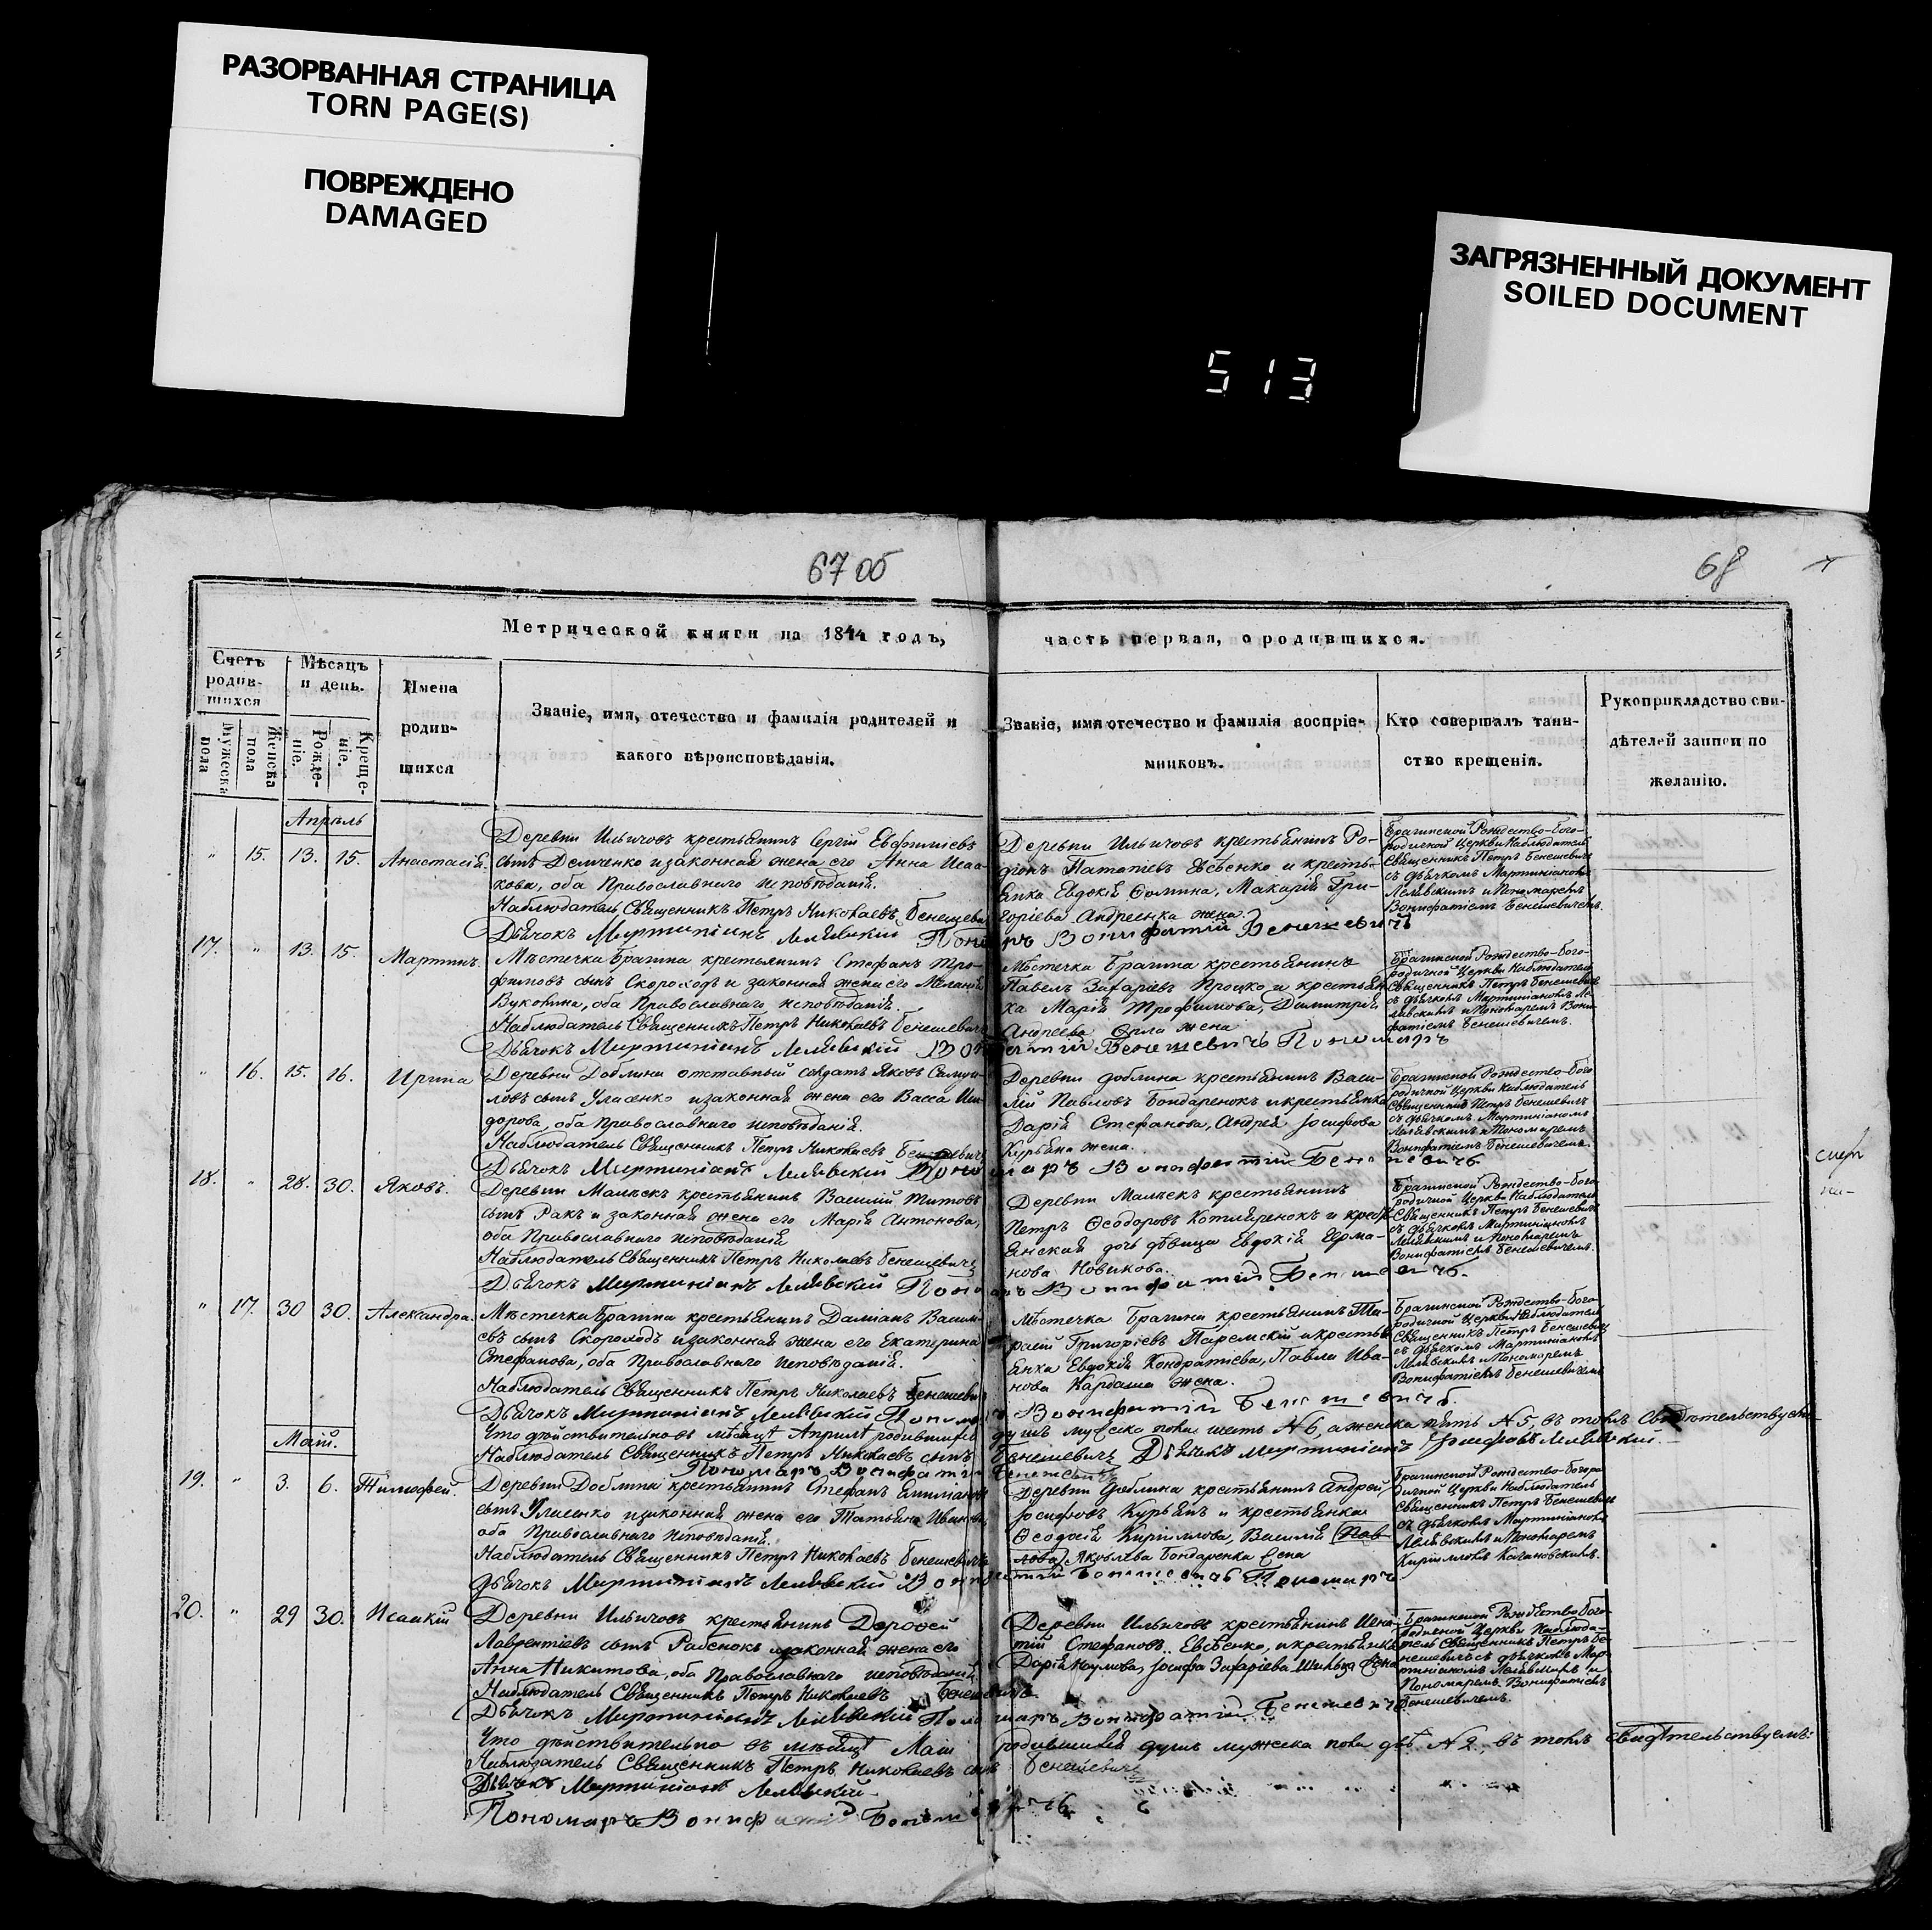 РАЗОРВАННАЯ СТРАНИЦА
TORN PAGE(S)
ПОВРЕЖДЕНО
DAMAGED
ЗАГРЯЗНЕННЫЙ ДОКУМЕНТ
SOILED DOCUMENT
513
67 об
68
Метрической книги на 1844 годъ, часть первая, о родившихся.
Счетъ родив-шихся
Мужеска пола
Женска пола
Мѣсяцъ и день.
Рожде-ніе.
Креще-ніе.
Имена
родив-
шихся
Званіе, имя, отечество и фамилія родителей и
какого вѣроисповѣданія.
Званіе, имя отечество и фамилія воспріе-
мниковъ.
Кто совершалъ таин-
ство крещенія.
Рукоприкладство сви-
дѣтелей записи по
желанію.
Апрѣль
" 15. 13. 15. Анастасія.
Деревни Ильичовъ крестьянинъ Сергій Евфиміевъ
сынъ Демченко и законная жена его Анна Исаа-
кова, оба Православнаго исповѣданія.
Наблюдатель Священникъ Петръ Николаевъ Бенешевичъ
Дьячокъ Мартиніанъ Лелявскій
Пономаръ Вонифатій Бенешевичъ
Деревни Ильичовъ крестьянинъ Ро-
діонъ Евсѣенко и кресть-
янка Евдокія Фомина, Макарія Гри-
горіева Андреенка жена.
Брагинской Рождество-Бого-
родичной Церкви Наблюдатель
Священникъ Петръ Бенешевичъ
съ дьячкомъ Мартиніаномъ
Лелявскимъ и Пономаремъ
Вонифатіемъ Бенешевичемъ.
17. " 13. 15. Мартинъ.
Мѣстечка Брагина крестьянинъ Стефанъ Тро-
фимовъ сынъ Скороходъ и законная жена его Меланія
оба Православнаго исповѣданія.
Наблюдатель Священникъ Петръ Николаевъ Бенешевичъ
Дьячокъ Мартиніанъ Лелявскій
Вонифатій Бенешевичъ Пономаръ
Мѣстечка Брагина крестьянинъ
Павелъ Захаріевъ Процко и крестьян-
ка Марія Трофимова, Димитрія
Андреева Орла жена
Брагинской Рождество-Бого-
родичной Церкви Наблюдатель
Священникъ Петръ Бенешевичъ
съ дьячкомъ Мартиніаномъ Ле-
лявскимъ и Пономаремъ Вони-
фатіемъ Бенешевичемъ.
" 16. 15. 16. Ирина
Деревни Доблина отставный солдатъ Яковъ Самуи-
ловъ сынъ Уласенко и законная жена его Васса Иси-
дорова, оба Православнаго исповѣданія.
Наблюдатель Священникъ Петръ Николаевъ Бенешевичъ
Дьячокъ Мартиніанъ Лелявскій
Пономаръ Вонифатій Бенешевичъ
Деревни Доблина крестьянинъ Васи-
лій Павловъ Бондаренокъ и крестьянка
Дарія Стефанова, Андрея Іосифова
Курьяна жена.
Брагинской Рождество-Бого-
родичной Церкви Наблюдатель
Священникъ Петръ Бенешевичъ
съ дьячкомъ Мартиніаномъ
Лелявскимъ и Пономаремъ
Вонифатіемъ Бенешевичемъ.
18. " 28. 30. Яковъ.
Деревни Малѣекъ крестьянинъ Василій Титовъ
сынъ Ракъ и законная жена его Марія Антонова,
оба Православнаго исповѣданія
Наблюдатель Священникъ Петръ Николаевъ Бенешевичъ
Дьячокъ Мартиніанъ Лелявскій
Пономаръ Вонифатій Бенешевичъ.
Деревни Малѣекъ крестьянинъ
Петръ Ѳеодоровъ Котляренокъ и кресть-
янская дочь дѣвица Евдокія Ерма-
нова Новикова.
Брагинской Рождество-Бого-
родичной Церкви Наблюдатель
Священникъ Петръ Бенешевичъ
съ дьячкомъ Мартиніаномъ
Лелявскимъ и Пономаремъ
Вонифатіемъ Бенешевичемъ.
" 17. 30 30. Александра.
Мѣстечка Брагина крестьянинъ Даміанъ Васили-
евъ сынъ Скороходъ и законная жена его Екатерина
Стефанова, оба Православнаго исповѣданія.
Наблюдатель Священникъ Петръ Николаевъ Бенешевичъ
Дьячокъ Мартиніанъ Лелявскій Пономаръ
Вонифатій Бенешевичъ.
Мѣстечка Брагина крестьянинъ Та-
расій Григоріевъ Таремскій и кресть-
янка Евдокія Кондратіева, Павла Ива-
нова Кардаша жена.
Брагинской Рождество-Бого-
родичной Церкви Наблюдатель
Священникъ Петръ Бенешевичъ
съ дьячкомъ Мартиніаномъ
Лелявскимъ и Пономаремъ
Вонифатіемъ Бенешевичемъ
Что дѣйствительно въ мѣсяцѣ Априлѣ родившихся душъ мужеска пола шесть № 6, а женска пять № 5, въ томъ свидѣтельствуемъ
Наблюдатель Священникъ Петръ Николаевъ сынъ Бенешевичъ Дьячокъ Мартиніанъ Лелявскій.
Пономаръ Вонифатій Бенешевичъ
Маій.
19. " 3. 6. Тимофей.
Деревни Доблина крестьянинъ Стефанъ
сынъ Уласенко и законная жена его Татьяна Иванова,
оба Православнаго исповѣданія.
Наблюдатель Священникъ Петръ Николаевъ Бенешевичъ
Дьячокъ Мартиніанъ Лелявскій
Вонифатій Бенешевичъ Пономаръ
Деревни Доблина крестьянинъ Андрей
Іосифовъ Курьянъ и крестьянка
Ѳеодосія Кириллова, Василія Пав-
лова Яковлева Бондаренка жена
Брагинской Рождество-Богоро-
дичной Церкви Наблюдатель
Священникъ Петръ Бенешевичъ
съ дьячкомъ Мартиніаномъ
Лелявскимъ и Пономаремъ
Кирилломъ Качановскимъ.
20. " 29 30. Исаакій
Деревни Ильичовъ крестьянинъ Дороѳей
Лаврентіевъ сынъ и законная жена его
Анна Никитова, оба Православнаго исповѣданія
Наблюдатель Священникъ Петръ Николаевъ Бенешевичъ
Дьячокъ Мартиніанъ Лелявскій
Пономаръ Вонифатій Бенешевичъ
Деревни Ильичовъ крестьянинъ Игна-
тій Стефановъ Евсѣенко, и крестьянка
Дарія Наумова, Іосифа Захаріева жена
Брагинской Рождество-Бого-
родичной Церкви Наблюда-
тель Священникъ Петръ Бе-
нешевичъ съ дьячкомъ Мар-
тиніаномъ Лелявскимъ и
Пономаремъ Вонифатіемъ
Бенешевичемъ.
Что дѣйствительно въ мѣсяцѣ Маіи родившихся душъ мужеска пола двѣ № 2, въ томъ свидѣтельствуемъ:
Наблюдатель Священникъ Петръ Николаевъ сынъ Бенешевичъ
Дьячокъ Мартиніанъ Лелявскій
Пономаръ Вонифатій Бенешевичъ